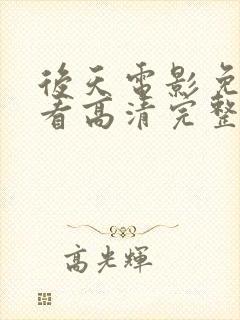 後天電影免
看高清完整
高光輝